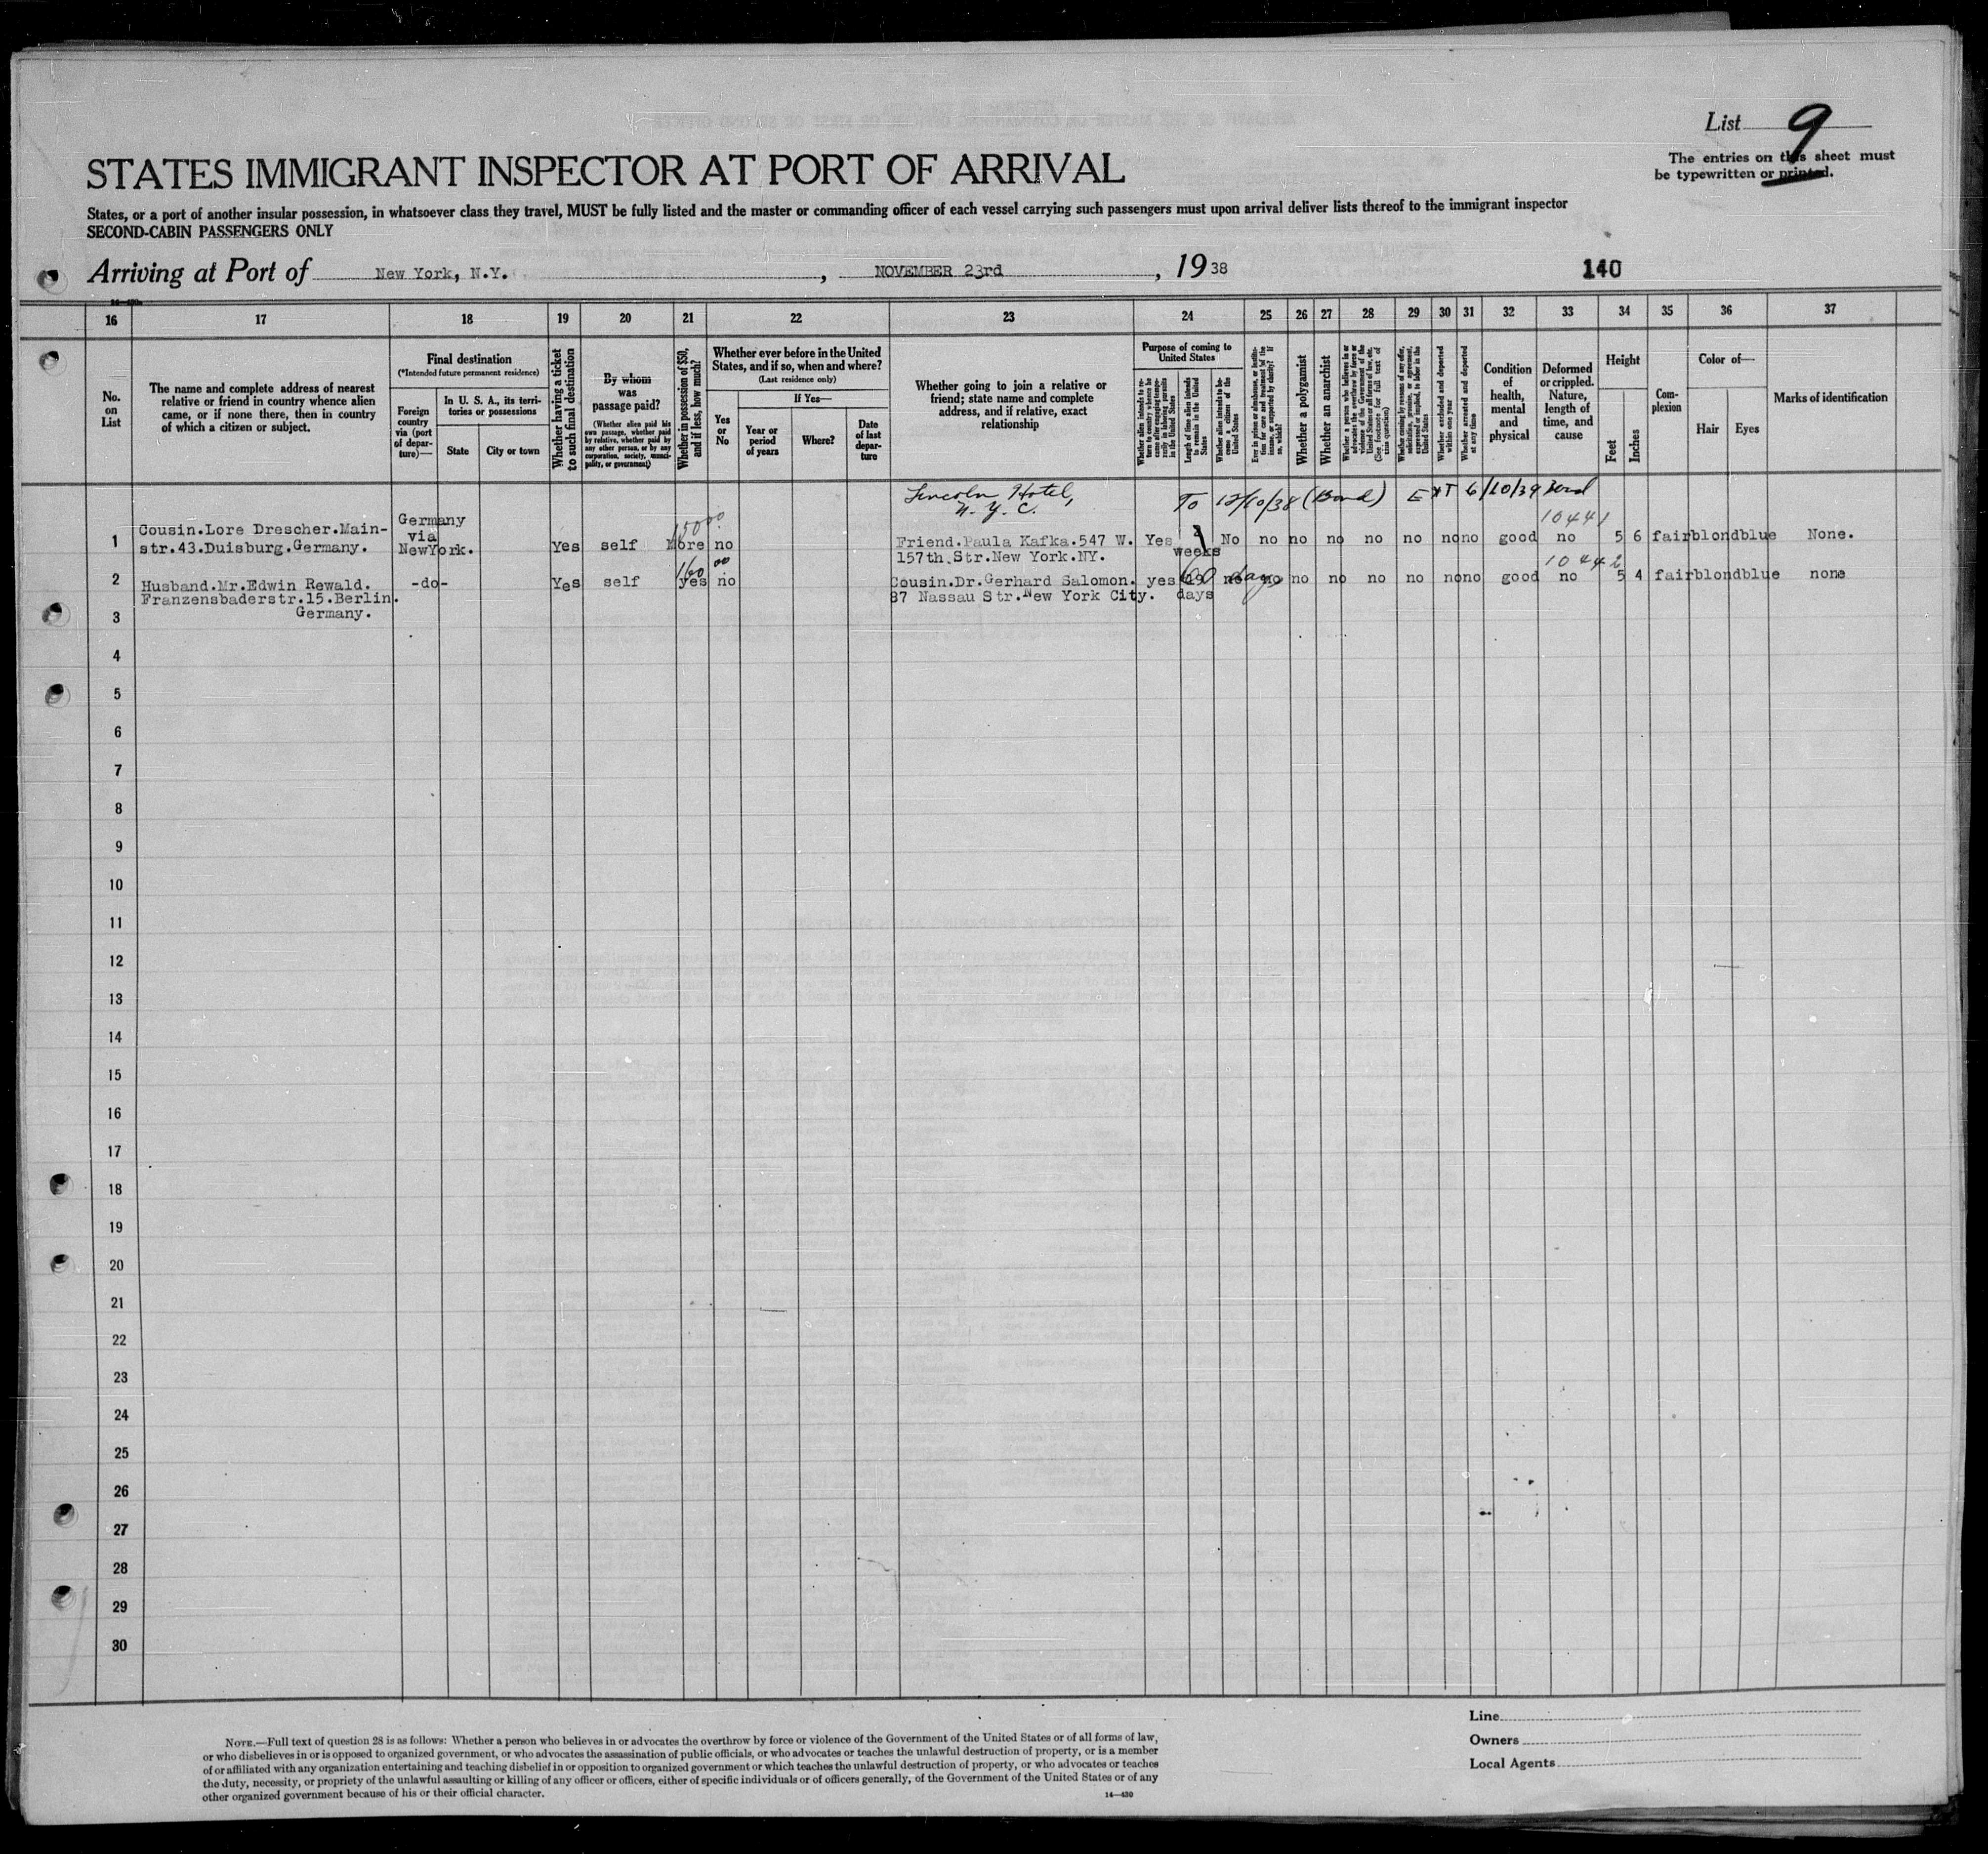 List 9
The entries on this sheet must
be typewritten or printed.
STATES IMMIGRANT INSPECTOR AT PORT OF ARRIVAL
States, or a port of another insular possession, in whatsoever class they travel, MUST be fully listed and the master or commanding officer of each vessel carrying such passengers must upon arrival deliver lists thereof to the immigrant inspector
SECOND-CABIN PASSENGERS ONLY
Arriving at Port of New York, N.Y. , NOVEMBER 23rd , 1938
140
16 17 18 19 20 21 22 23 24 25 26 27 28 29 30 31 32 33 34 35 36 37
No. on List
The name and complete address of nearest
relative or friend in country whence alien
came, or if none there, then in country
of which a citizen or subject.
Final destination
(*Intended future permanent residence)
Foreign country via (port of departure)—
In U. S. A., its territories or possessions
State
City or town
Whether having a ticket to such final destination
By whom was passage paid?
(Whether alien paid his own passage, whether paid by relative, whether paid by any other person, or by any corporation, society, municipality, or government)
Whether in possession of $50, and if less, how much?
Whether ever before in the United
States, and if so, when and where?
(Last residence only)
Yes or No
If Yes—
Year or period of years
Where?
Date of last departure
Whether going to join a relative or
friend; state name and complete
address, and if relative, exact
relationship
Purpose of coming to
United States
Whether alien intends to return to country whence he came after engaging temporarily in laboring pursuits in the United States
Length of time alien intends to remain in the United States
Whether alien intends to become a citizen of the United States
Ever in prison or almshouse, or institution for care and treatment of the insane, or supported by charity? If so, which?
Whether a polygamist
Whether an anarchist
Whether a person who believes in or advocates the overthrow by force or violence of the Government of the United States or all forms of law, etc. (See footnote for full text of this question)
Whether coming by reason of any offer, solicitation, promise, or agreement, expressed or implied, to labor in the United States
Whether excluded and deported within one year
Whether arrested and deported at any time
Condition of health, mental and physical
Deformed or crippled. Nature, length of time, and cause
Height
Feet
Inches
Complexion
Color of—
Hair
Eyes
Marks of identification
Lincoln Hotel,
N. Y. C.
To 12/10/38 (Bond) EXT 6/10/39 Bond
10441
1 Cousin.Lore Drescher.Main-
str.43.Duisburg.Germany.
Germany
via
NewYork.
Yes self More no
Friend.Paula Kafka.547 W.
157th.Str.New York.NY.
Yes weeks No no no no no no no no good no 5 6 fair blond blue None.
10442
2 Husband.Mr.Edwin Rewald.
Franzensbaderstr.15.Berlin.
Germany.
-do- Yes self 160 00 yes no
Cousin.Dr.Gerhard Salomon.
87 Nassau Str.New York City.
yes 60 days days no no no no no no no no good no 5 4 fair blond blue none
3
4
5
6
7
8
9
10
11
12
13
14
15
16
17
18
19
20
21
22
23
24
25
26
27
28
29
30
NOTE.—Full text of question 28 is as follows: Whether a person who believes in or advocates the overthrow by force or violence of the Government of the United States or of all forms of law,
or who disbelieves in or is opposed to organized government, or who advocates the assassination of public officials, or who advocates or teaches the unlawful destruction of property, or is a member
of or affiliated with any organization entertaining and teaching disbelief in or opposition to organized government or which teaches the unlawful destruction of property, or who advocates or teaches
the duty, necessity, or propriety of the unlawful assaulting or killing of any officer or officers, either of specific individuals or of officers generally, of the Government of the United States or of any
other organized government because of his or their official character.
14—430
Line
Owners
Local Agents